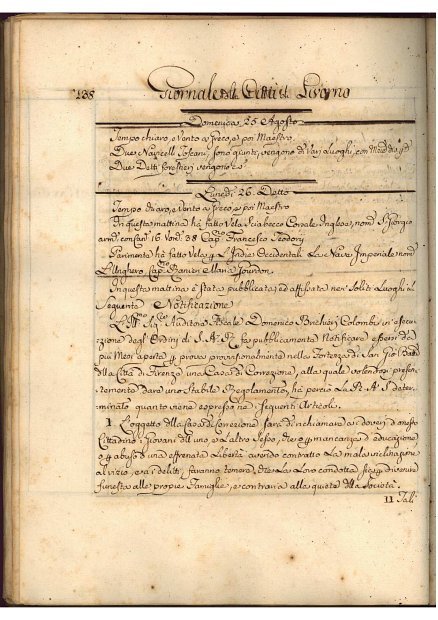 138 Giornale della Città di Livorno
Domenica 25 Agosto
Tempo chiaro, e Vento a Greco, e poi Maestro
Due Navicelli Toscani, sono giunti, vengono di Vari Luoghi, con
Due Detti forestieri vengono
Lunedì 26. Detto
Tempo chiaro, e Vento a Greco, e poi Maestro
In questa mattina hà fatto Vela Sciabecco Corsale Inglese, nom.
arm. con Can. 16. Uom. 38 Cap.no Francesco Teodorij
Parimente hà fatto Vela p. L'Indie Occidentali La Nave Imperiale nom.
L'Unghero Cap.no Danieri Maria Jourdon.
In questa matina è stata pubblicata, ed affissata nei Soliti Luoghi la
Seguente Notificazione
L'Ill.mo Sig.re Auditore Fiscale Domenico Brichieri Colombi in esecu-
zione degli Ordini di S. A. R. fa pubblicamente Notificare essersi da
più Mesi aperta p. prova provisionalmente nella Fortezza di San Gio: Batta
dlla Città di Firenze una Casa di Correzione, alla quale volendosi presen-
temente dare uno Stabile Regolamento, hà perciò La R. A. S. deter-
minato quanto viene espresso ne' seguenti Articoli.
1. L'oggetto dlla Casa di Correzione sarà di richiamare ai doveri d'onesto
Cittadino i Giovani dll'uno, e L'altro Sesso, che o p. mancanza d'educazione,
o p. abuso d'una effrenata Libertà avendo contratto La mala inclinazione
al vizio, e ai delitti, faranno temere, che La Loro condotta, sia p. divenire
funesta alle proprie Famiglie, e contraria alla quiete dlla Società.
11 Tali